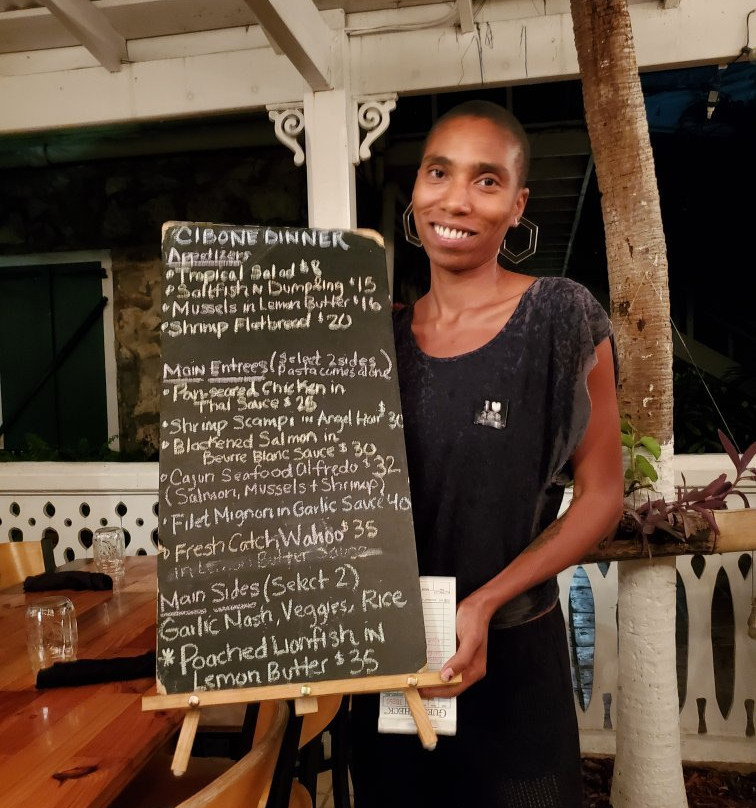 CIBONE DINNER
Appetizers
• Tropical Salad $8
• Saltfish N Dumpling $15
• Mussels in Lemon Butter $16
• Shrimp Flatbread $20
Main Entrees (select 2 sides
pasta comes alone)
• Pan-seared Chicken in
Thai Sauce $26
• Shrimp Scampi in Angel Hair $30
• Blackened Salmon in
Beurre Blanc Sauce $30
• Cajun Seafood Alfredo $32
(Salmon, Mussels + Shrimp)
• Filet Mignon in Garlic Sauce 40
• Fresh Catch Wahoo $35
in Lemon Butter Sauce
Main Sides (Select 2)
Garlic Mash, Veggies, Rice
* Poached Lionfish in
Lemon Butter $35
I